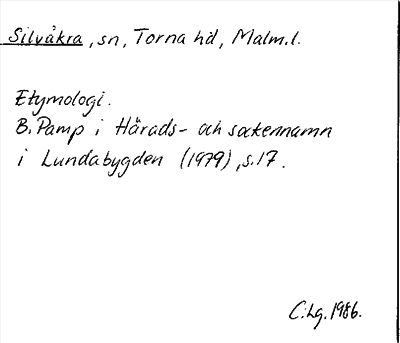 Silvåkra, sn, Torna hd, Malm. l.
Etymologi.
B. Pamp i Härads- och sockennamn
i Lundabygden (1979), s. 17.
C. Lg. 1986.